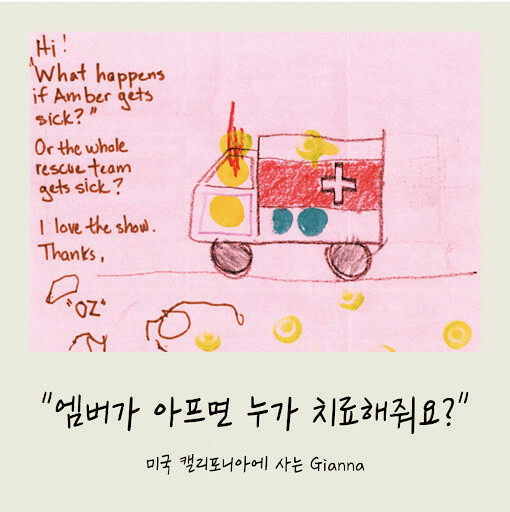 Hi!
"What happens
if Amber gets
sick?"
Or the whole
rescue team
gets sick?
I love the show.
Thanks,
"OZ"
"엠버가 아프면 누가 치료해줘요?"
미국 캘리포니아에 사는 Gianna